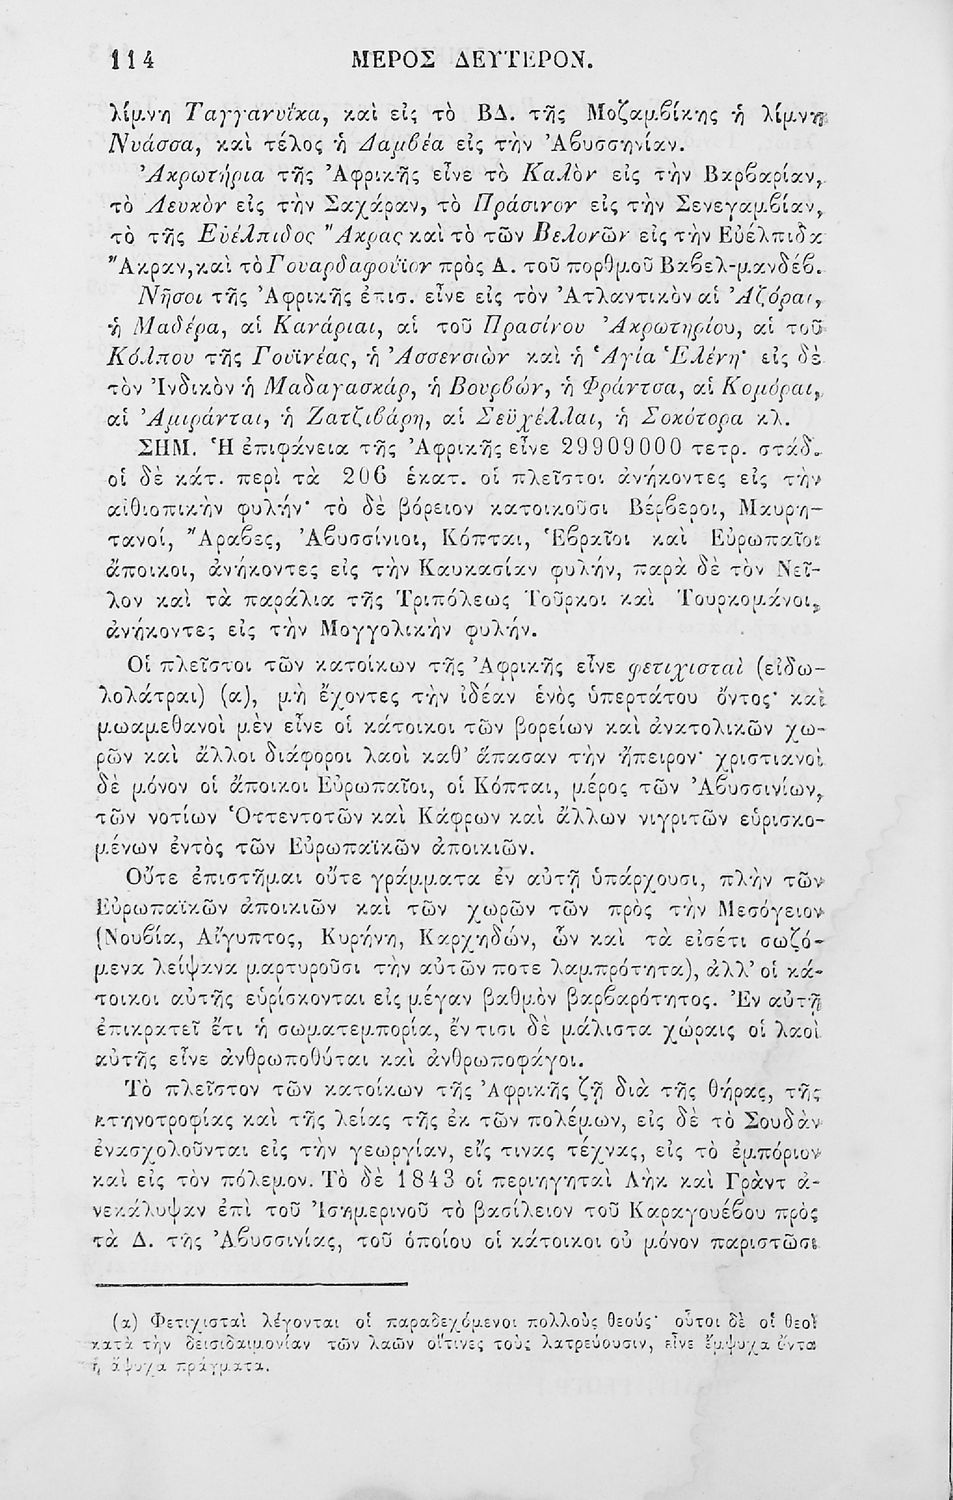 114 ΜΕΡΟΣ ΔΕΥΤΕΡΟΝ.
λίμνη Ταγγανυΐκα, καὶ εἰς τὸ ΒΔ. τῆς Μοζαμβίκης ἡ λίμνη
Νυάσσα, καὶ τέλος ἡ Δαμβέα εἰς τὴν Ἀβυσσηνίαν.
Ἀκρωτήρια τῆς Ἀφρικῆς εἶνε τὸ Καλὸν εἰς τὴν Βαρβαρίαν,
τὸ Λευκὸν εἰς τὴν Σαχάραν, τὸ Πράσινον εἰς τὴν Σενεγαμβίαν,
τὸ τῆς Εὐέλπιδος Ἄκρας καὶ τὸ τῶν Βελονῶν εἰς τὴν Εὐέλπιδα
Ἄκραν, καὶ τὸ Γουαρδαφούϊον πρὸς Α. τοῦ πορθμοῦ Βαβελ-μανδέβ.
Νῆσοι τῆς Ἀφρικῆς ἐπισ. εἶνε εἰς τὸν Ἀτλαντικὸν αἱ Ἀζόραι,
ἡ Μαδέρα, αἱ Κανάριαι, αἱ τοῦ Πρασίνου Ἀκρωτηρίου, αἱ τοῦ
Κόλπου τῆς Γουϊνέας, ἡ Ἀσσενσιὼν καὶ ἡ Ἁγία Ἑλένη· εἰς δὲ
τὸν Ἰνδικὸν ἡ Μαδαγασκάρ, ἡ Βουρβών, ἡ Φράντσα, αἱ Κομόραι,
αἱ Ἀμιράνται, ἡ Ζατζιβάρη, αἱ Σεϋχέλλαι, ἡ Σοκότορα κλ.
ΣΗΜ. Ἡ ἐπιφάνεια τῆς Ἀφρικῆς εἶνε 29909000 τετρ. στάδ.
οἱ δὲ κάτ. περὶ τὰ 206 ἑκατ. οἱ πλεῖστοι ἀνήκοντες εἰς τὴν
αἰθιοπικὴν φυλήν· τὸ δὲ βόρειον κατοικοῦσι Βέρβεροι, Μαυρη-
τανοί, Ἄραβες, Ἀβυσσίνιοι, Κόπται, Ἑβραῖοι καὶ Εὐρωπαῖοι
ἄποικοι, ἀνήκοντες εἰς τὴν Καυκασίαν φυλήν, παρὰ δὲ τὸν Νεῖ-
λον καὶ τὰ παράλια τῆς Τριπόλεως Τοῦρκοι καὶ Τουρκομάνοι,
ἀνήκοντες εἰς τὴν Μογγολικὴν φυλήν.
Οἱ πλεῖστοι τῶν κατοίκων τῆς Ἀφρικῆς εἶνε φετιχισταὶ (εἰδω-
λολάτραι) (α), μὴ ἔχοντες τὴν ἰδέαν ἑνὸς ὑπερτάτου ὄντος· καὶ
μωαμεθανοὶ μὲν εἶνε οἱ κάτοικοι τῶν βορείων καὶ ἀνατολικῶν χω-
ρῶν καὶ ἄλλοι διάφοροι λαοὶ καθ’ ἅπασαν τὴν ἤπειρον· χριστιανοὶ
δὲ μόνον οἱ ἄποικοι Εὐρωπαῖοι, οἱ Κόπται, μέρος τῶν Ἀβυσσινίων,
τῶν νοτίων Ὁττεντοτῶν καὶ Κάφρων καὶ ἄλλων νιγριτῶν εὑρισκο-
μένων ἐντὸς τῶν Εὐρωπαϊκῶν ἀποικιῶν.
Οὔτε ἐπιστῆμαι οὔτε γράμματα ἐν αὐτῇ ὑπάρχουσι, πλὴν τῶν
Εὐρωπαϊκῶν ἀποικιῶν καὶ τῶν χωρῶν τῶν πρὸς τὴν Μεσόγειον
(Νουβία, Αἴγυπτος, Κυρήνη, Καρχηδών, ὧν καὶ τὰ εἰσέτι σωζό-
μενα λείψανα μαρτυροῦσι τὴν αὐτῶν ποτε λαμπρότητα), ἀλλ’ οἱ κά-
τοικοι αὐτῆς εὑρίσκονται εἰς μέγαν βαθμὸν βαρβαρότητος. Ἐν αὐτῇ
ἐπικρατεῖ ἔτι ἡ σωματεμπορία, ἔν τισι δὲ μάλιστα χώραις οἱ λαοὶ
αὐτῆς εἶνε ἀνθρωποθύται καὶ ἀνθρωποφάγοι.
Τὸ πλεῖστον τῶν κατοίκων τῆς Ἀφρικῆς ζῇ διὰ τῆς θήρας, τῆς
κτηνοτροφίας καὶ τῆς λείας τῆς ἐκ τῶν πολέμων, εἰς δὲ τὸ Σουδὰν
ἐνασχολοῦνται εἰς τὴν γεωργίαν, εἴς τινας τέχνας, εἰς τὸ ἐμπόριον
καὶ εἰς τὸν πόλεμον. Τὸ δὲ 1843 οἱ περιηγηταὶ Λὴκ καὶ Γρὰντ ἀ-
νεκάλυψαν ἐπὶ τοῦ Ἰσημερινοῦ τὸ βασίλειον τοῦ Καραγουέβου πρὸς
τὰ Δ. τῆς Ἀβυσσινίας, τοῦ ὁποίου οἱ κάτοικοι οὐ μόνον παριστῶσι
(α) Φετιχισταὶ λέγονται οἱ παραδεχόμενοι πολλοὺς θεούς· οὗτοι δὲ οἱ θεοὶ
κατὰ τὴν δεισιδαιμονίαν τῶν λαῶν οἵτινες τοὺς λατρεύουσιν, εἶνε ἔμψυχα ὄντα
ἢ ἄψυχα πράγματα.